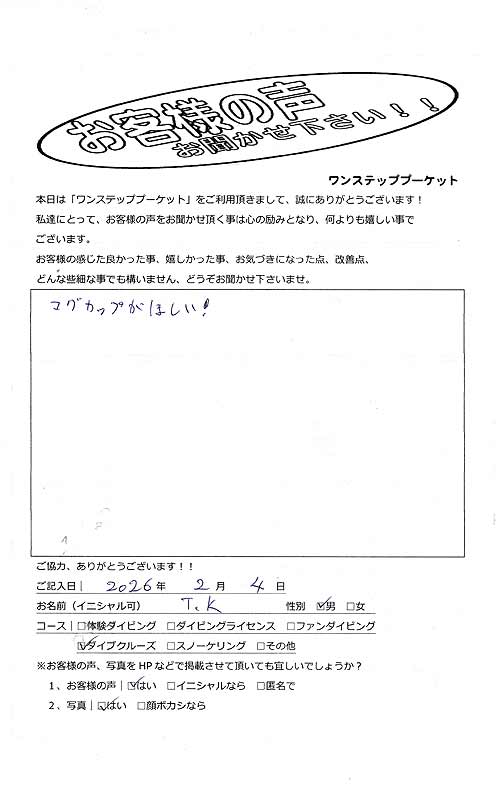 お客様の声
お聞かせ下さい！！
ワンステッププーケット
本日は「ワンステッププーケット」をご利用頂きまして、誠にありがとうございます！
私達にとって、お客様の声をお聞かせ頂く事は心の励みとなり、何よりも嬉しい事で
ございます。
お客様の感じた良かった事、嬉しかった事、お気づきになった点、改善点、
どんな些細な事でも構いません、どうぞお聞かせ下さいませ。
マグカップがほしい!
ご協力、ありがとうございます！！
ご記入日| 2026 年 2 月 4 日
お名前（イニシャル可） T.K 性別 ☑男 □女
コース|□体験ダイビング □ダイビングライセンス □ファンダイビング
☑ダイブクルーズ □スノーケリング □その他
※お客様の声、写真を HP などで掲載させて頂いても宜しいでしょうか？
1、お客様の声|☑はい □イニシャルなら □匿名で
2、写真|☑はい □顔ボカシなら